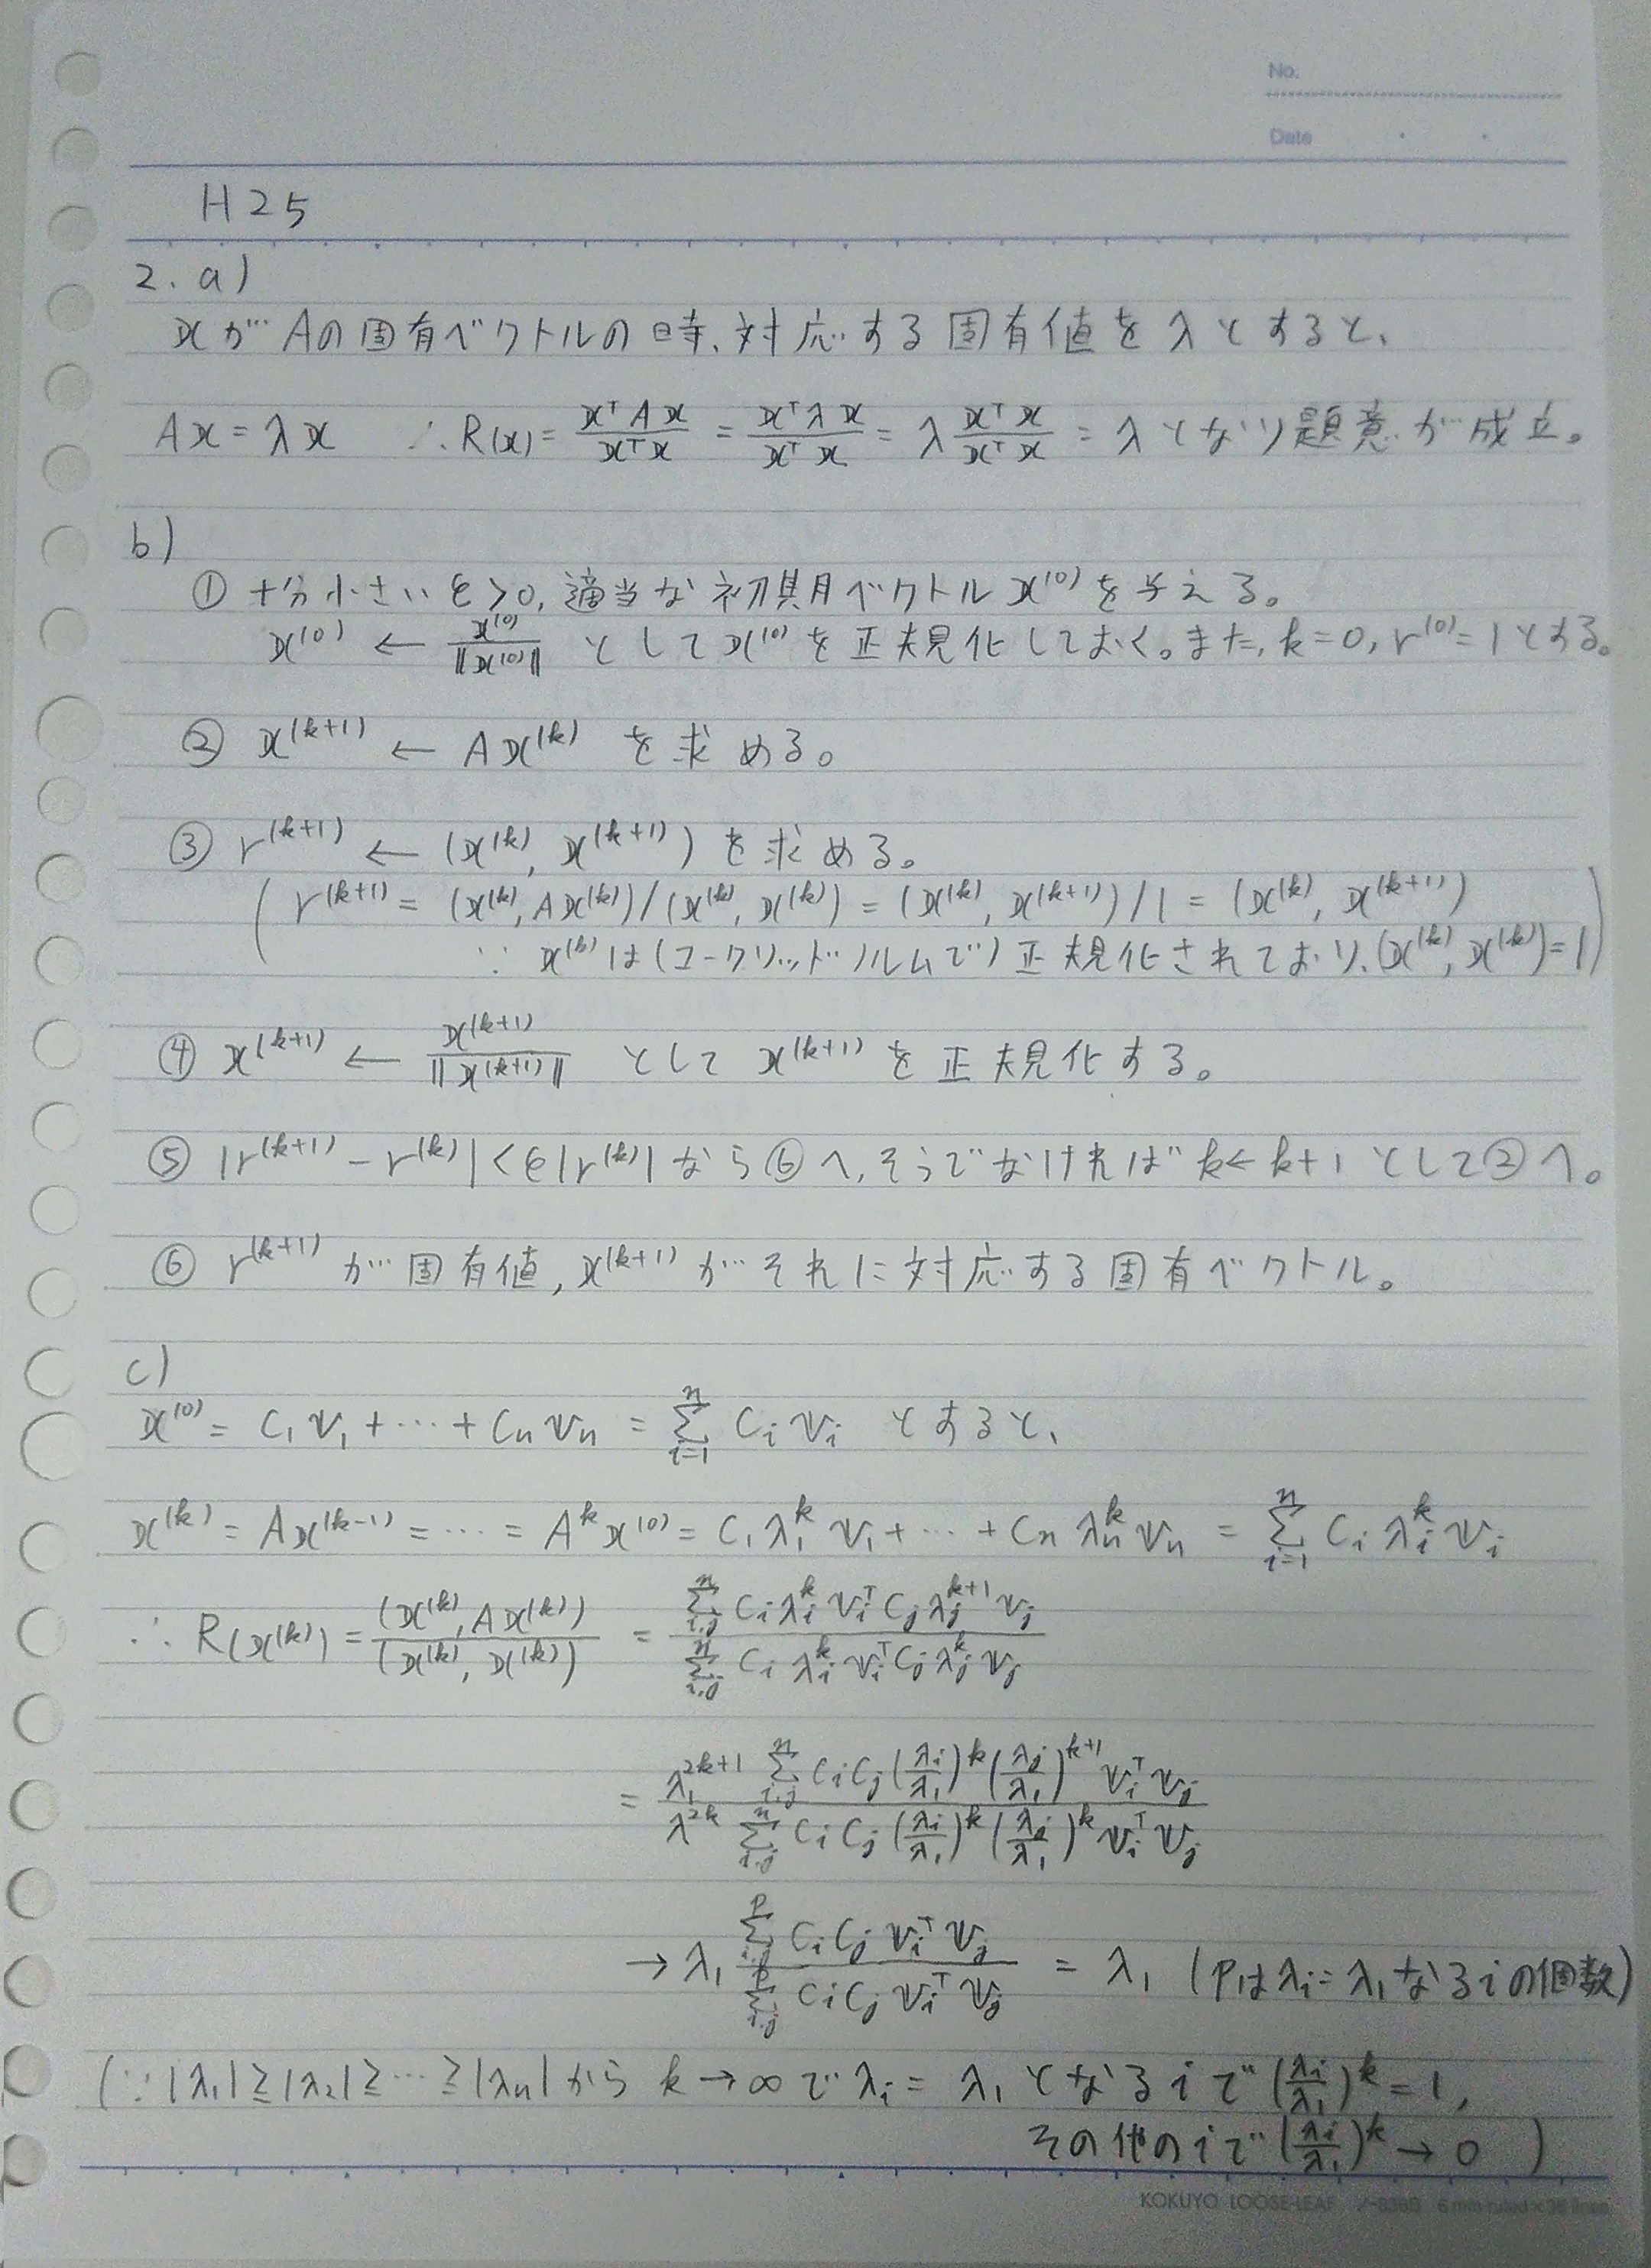 No.
Date
H25
2. a)
xがAの固有ベクトルの時、対応する固有値をλとすると、
Ax = λx ∴ R(x) = xᵀAx / xᵀx = xᵀλx / xᵀx = λ xᵀx / xᵀx = λ となり題意が成立。
b)
① 十分小さいε>0, 適当な初期ベクトルx⁽⁰⁾を与える。
x⁽⁰⁾ ← x⁽⁰⁾ / ‖x⁽⁰⁾‖ としてx⁽⁰⁾を正規化しておく。また, k=0, r⁽⁰⁾=1とする。
② x⁽ᵏ⁺¹⁾ ← Ax⁽ᵏ⁾ を求める。
③ r⁽ᵏ⁺¹⁾ ← (x⁽ᵏ⁾, x⁽ᵏ⁺¹⁾) を求める。
( r⁽ᵏ⁺¹⁾ = (x⁽ᵏ⁾, Ax⁽ᵏ⁾)/(x⁽ᵏ⁾, x⁽ᵏ⁾) = (x⁽ᵏ⁾, x⁽ᵏ⁺¹⁾)/1 = (x⁽ᵏ⁾, x⁽ᵏ⁺¹⁾)
∵ x⁽ᵏ⁾は(ユークリッドノルムで)正規化されており、(x⁽ᵏ⁾, x⁽ᵏ⁾)=1 )
④ x⁽ᵏ⁺¹⁾ ← x⁽ᵏ⁺¹⁾ / ‖x⁽ᵏ⁺¹⁾‖ として x⁽ᵏ⁺¹⁾ を正規化する。
⑤ |r⁽ᵏ⁺¹⁾ − r⁽ᵏ⁾| < ε|r⁽ᵏ⁾| なら⑥へ, そうでなければ k←k+1 として②へ。
⑥ r⁽ᵏ⁺¹⁾ が固有値, x⁽ᵏ⁺¹⁾ がそれに対応する固有ベクトル。
c)
x⁽⁰⁾ = C₁v₁ + ⋯ + Cₙvₙ = Σ_{i=1}^{n} Cᵢvᵢ とすると、
x⁽ᵏ⁾ = Ax⁽ᵏ⁻¹⁾ = ⋯ = Aᵏx⁽⁰⁾ = C₁λ₁ᵏv₁ + ⋯ + Cₙλₙᵏvₙ = Σ_{i=1}^{n} Cᵢλᵢᵏvᵢ
∴ R(x⁽ᵏ⁾) = (x⁽ᵏ⁾, Ax⁽ᵏ⁾) / (x⁽ᵏ⁾, x⁽ᵏ⁾) = Σ_{i,j}^{n} Cᵢλᵢᵏvᵢᵀ Cⱼλⱼᵏ⁺¹vⱼ / Σ_{i,j}^{n} Cᵢλᵢᵏvᵢᵀ Cⱼλⱼᵏvⱼ
= λ₁²ᵏ⁺¹ Σ_{i,j}^{n} CᵢCⱼ(λᵢ/λ₁)ᵏ(λⱼ/λ₁)ᵏ⁺¹vᵢᵀvⱼ / λ²ᵏ Σ_{i,j}^{n} CᵢCⱼ(λᵢ/λ₁)ᵏ(λⱼ/λ₁)ᵏvᵢᵀvⱼ
→ λ₁ Σ_{i,j}^{p} CᵢCⱼvᵢᵀvⱼ / Σ_{i,j}^{p} CᵢCⱼvᵢᵀvⱼ = λ₁ (pはλᵢ=λ₁なるiの個数)
(∵ |λ₁|≧|λ₂|≧⋯≧|λₙ|から k→∞で λᵢ=λ₁となるiで (λᵢ/λ₁)ᵏ=1,
その他のiで (λᵢ/λ₁)ᵏ→0 )
KOKUYO LOOSE-LEAF ノ-836B 6 mm ruled × 36 lines